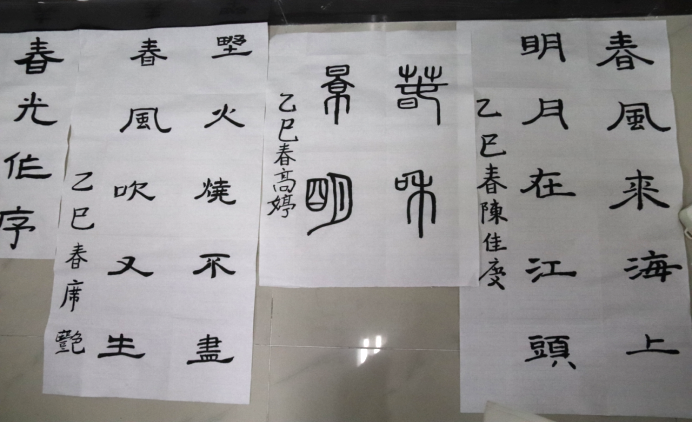 春風来海上
明月在江頭
乙巳春陳佳慶
春和
景明
乙巳春高婷
野火燒不盡
春風吹又生
乙巳春席艷
春光作序